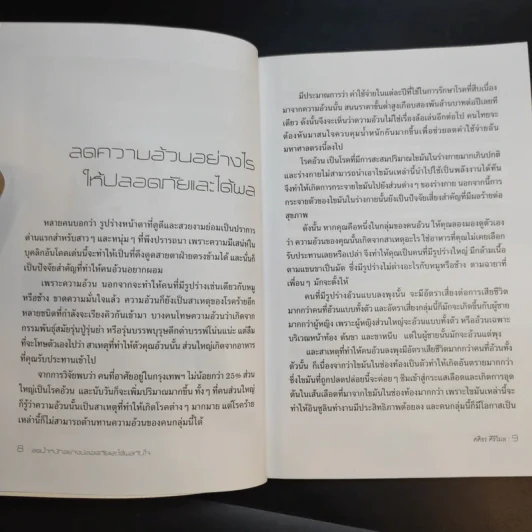 ลดความอ้วนอย่างไร
ให้ปลอดภัยและได้ผล
หลายคนบอกว่า รูปร่างหน้าตาที่ดูดีและสวยงามย่อมเป็นปราการ
ด่านแรกสำหรับสาว ๆ และหนุ่ม ๆ ที่พึงปรารถนา เพราะความมีเสน่ห์ใน
บุคลิกอันโดดเด่นนี้จะทำให้เป็นที่ดึงดูดสายตาฝ่ายตรงข้ามได้ และนั่นก็
เป็นปัจจัยสำคัญที่ทำให้คนอ้วนอยากผอม
เพราะความอ้วน นอกจากจะทำให้คนที่มีรูปร่างเช่นเดียวกับหมู
หรือช้าง ขาดความมั่นใจแล้ว ความอ้วนก็ยังเป็นสาเหตุของโรคร้ายอีก
หลายชนิดที่กำลังจะเรียงคิวกันเข้ามา บางคนโทษความอ้วนว่าเกิดจาก
กรรมพันธุ์สมัยรุ่นปู่รุ่นย่า หรือรุ่นบรรพบุรุษดึกดำบรรพ์โน่นแน่ะ แต่ลืม
ที่จะโทษตัวเองไปว่า สาเหตุที่ทำให้ตัวคุณอ้วนนั้น ส่วนใหญ่เกิดจากอาหาร
ที่คุณรับประทานเข้าไป
จากการวิจัยพบว่า คนที่อาศัยอยู่ในกรุงเทพฯ ไม่น้อยกว่า 25% ส่วน
ใหญ่เป็นโรคอ้วน และนับวันก็จะเพิ่มปริมาณมากขึ้น ทั้ง ๆ ที่คนส่วนใหญ่
ก็รู้ว่าความอ้วนนั้นเป็นสาเหตุที่ทำให้เกิดโรคต่าง ๆ มากมาย แต่โรคร้าย
เหล่านี้ก็ไม่สามารถต้านทานความอ้วนของคนกลุ่มนี้ได้
8
มีประมาณการว่า ค่าใช้จ่ายในแต่ละปีที่ใช้ในการรักษาโรคที่สืบเนื่อง
มาจากความอ้วนนั้น สนนราคาขั้นต่ำสูงเกือบสองพันล้านบาทต่อปีเลยที
เดียว ดังนั้นจึงจะเห็นว่าความอ้วนไม่ใช่เรื่องล้อเล่นอีกต่อไป คนไทยจะ
ต้องหันมาสนใจควบคุมน้ำหนักกันมากขึ้นเพื่อช่วยลดค่าใช้จ่ายอัน
มหาศาลตรงนี้ลงไป
โรคอ้วน เป็นโรคที่มีการสะสมปริมาณไขมันในร่างกายมากเกินปกติ
และร่างกายไม่สามารถนำเอาไขมันเหล่านี้นำไปใช้เป็นพลังงานได้ทัน
จึงทำให้เกิดการกระจายไขมันไปยังส่วนต่าง ๆ ของร่างกาย นอกจากนี้การ
กระจายตัวของไขมันในร่างกายนั้นยังเป็นปัจจัยเสี่ยงสำคัญที่มีผลร้ายต่อ
สุขภาพ
ดังนั้น หากคุณคือหนึ่งในกลุ่มของคนอ้วน ให้คุณลองมองดูตัวเอง
ว่า ความอ้วนของคุณนั้นเกิดจากสาเหตุอะไร ใช่อาหารที่คุณไม่เคยเลือก
รับประทานเลยหรือเปล่า จึงทำให้คุณเป็นคนที่มีรูปร่างใหญ่ มีกล้ามเนื้อ
ตามแขนขาเป็นมัด ซึ่งมีรูปร่างไม่ต่างอะไรกับหมูหรือช้าง ตามฉายาที่
เพื่อน ๆ มักจะตั้งให้
คนที่มีรูปร่างอ้วนแบบลงพุงนั้น จะมีอัตราเสี่ยงต่อการเสียชีวิต
มากกว่าคนที่อ้วนทั้งตัว และอัตราเสี่ยงกลุ่มนี้ก็มักจะเกิดขึ้นกับผู้ชาย
มากกว่าผู้หญิง เพราะผู้หญิงส่วนใหญ่จะอ้วนแบบทั้งตัว หรืออ้วนเฉพาะ
บริเวณหน้าท้อง ต้นขา และขาหนีบ แต่ในผู้ชายนั้นมักจะอ้วนแต่พุง
และสาเหตุที่ทำให้คนอ้วนลงพุงมีอัตราเสียชีวิตมากกว่าคนที่อ้วนทั้ง
ตัวนั้น ก็เนื่องจากว่าไขมันในช่องท้องเป็นตัวที่ก่อให้เกิดอันตรายมากกว่า
ซึ่งไขมันที่ถูกปลดปล่อยนี้จะค่อย ๆ ซึมเข้าสู่กระแสเลือดและเกิดการอุด
ตันในเส้นเลือดที่มาจากไขมันในช่องท้องมากกว่า เพราะไขมันเหล่านี้จะ
ทำให้อินซูลินทำงานมีประสิทธิภาพด้อยลง และคนกลุ่มนี้ก็มีโอกาสเป็น
9